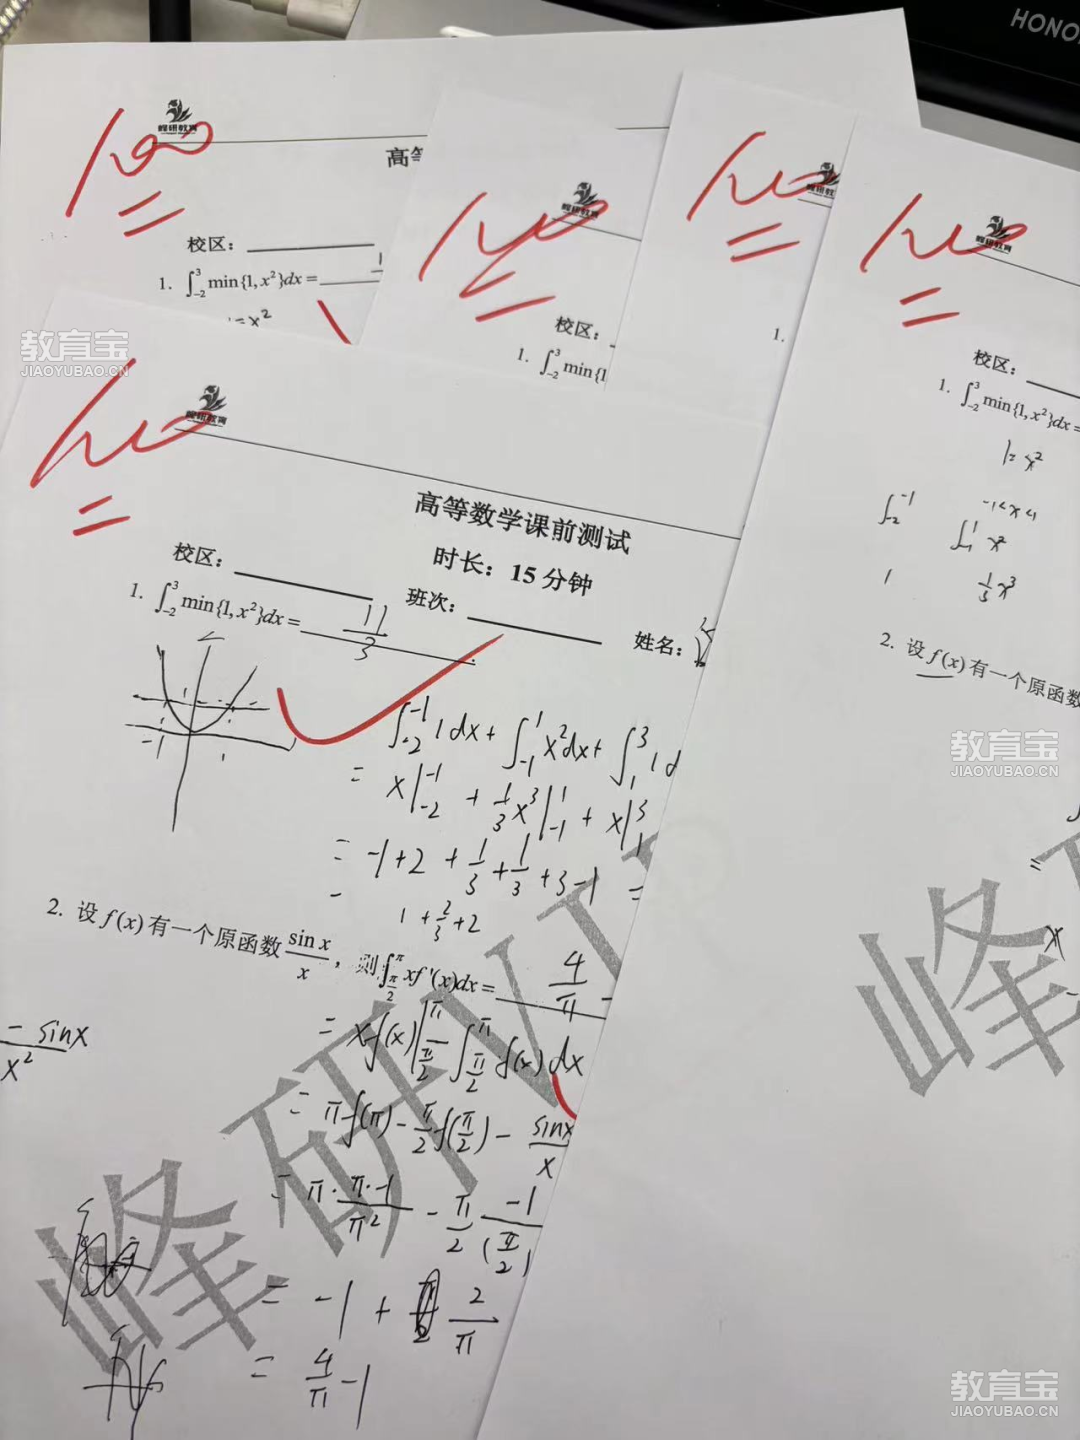 HONO
100
峰研教育
高等
校区：
1. ∫₋₂³ min{1, x²}dx =
1=x²
100
峰研教育
校区：
1. ∫₋₂³ min{1
100
峰研教育
1.
100
峰研教育
校区：
1. ∫₋₂³ min{1, x²}dx =
1= x²
∫₋₂⁻¹ -1<x<1
∫₋₁¹ x²
1 1/3 x³
2. 设 f(x) 有一个原函数
=
教育宝
JIAOYUBAO.CN
100
峰研教育
高等数学课前测试
时长：15 分钟
校区： 班次： 姓名：
1. ∫₋₂³ min{1, x²}dx = 11/3
-1 1
∫₋₂⁻¹ 1dx + ∫₋₁¹ x²dx + ∫₁³ 1d
= x|₋₂⁻¹ + 1/3 x³|₋₁¹ + x|₁³
= -1+2 + 1/3 + 1/3 + 3-1 =
1 + 2/3 + 2
2. 设 f(x) 有一个原函数 sin x/x ，则 ∫_{π/2}^{π} xf'(x)dx = 4/π -
- sinx/x²
= xf(x)|_{π/2}^{π} - ∫_{π/2}^{π} f(x) dx
= πf(π) - π/2 f(π/2) - sinx/x
= π · π·-1/π² - π/2 -1/(π/2)
= -1 + 2/π
= 4/π -1
峰研VI
峰
教育宝
JIAOYUBAO.CN
教育宝
JIAOYUBAO.CN